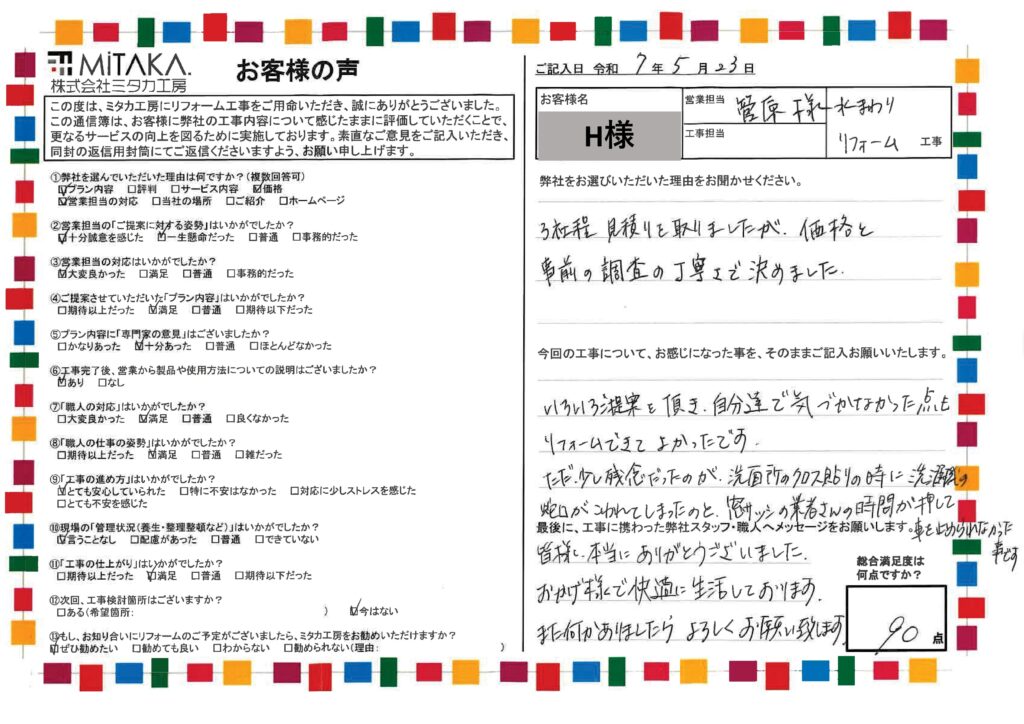 MiTAKA.
株式会社ミタカ工房
お客様の声
この度は、ミタカ工房にリフォーム工事をご用命いただき、誠にありがとうございました。
この通信簿は、お客様に弊社の工事内容について感じたままに評価していただくことで、
更なるサービスの向上を図るために実施しております。素直なご意見をご記入いただき、
同封の返信用封筒にてご返信くださいますよう、お願い申し上げます。
①弊社を選んでいただいた理由は何ですか?(複数回答可)
☑プラン内容 □評判 □サービス内容 ☑価格
☑営業担当の対応 □当社の場所 □ご紹介 □ホームページ
②営業担当の「ご提案に対する姿勢」はいかがでしたか?
☑十分誠意を感じた ☑一生懸命だった □普通 □事務的だった
③営業担当の対応はいかがでしたか?
☑大変良かった □満足 □普通 □事務的だった
④ご提案させていただいた「プラン内容」はいかがでしたか?
□期待以上だった ☑満足 □普通 □期待以下だった
⑤プラン内容に「専門家の意見」はございましたか?
□かなりあった ☑十分あった □普通 □ほとんどなかった
⑥工事完了後、営業から製品や使用方法についての説明はございましたか?
☑あり □なし
⑦「職人の対応」はいかがでしたか?
□大変良かった ☑満足 □普通 □良くなかった
⑧「職人の仕事の姿勢」はいかがでしたか?
□期待以上だった ☑満足 □普通 □雑だった
⑨「工事の進め方」はいかがでしたか?
☑とても安心していられた □特に不安はなかった □対応に少しストレスを感じた
□とても不安を感じた
⑩現場の「管理状況(養生・整理整頓など)」はいかがでしたか?
☑言うことなし □配慮があった □普通 □できていない
⑪「工事の仕上がり」はいかがでしたか?
□期待以上だった ☑満足 □普通 □期待以下だった
⑫次回、工事検討箇所はございますか?
□ある(希望箇所: ) ☑今はない
⑬もし、お知り合いにリフォームのご予定がございましたら、ミタカ工房をお勧めいただけますか?
☑ぜひ勧めたい □勧めても良い □わからない □勧められない(理由: )
ご記入日 令和 7 年 5 月 23 日
お客様名
H様
営業担当 菅原様
工事担当
水まわり
リフォーム 工事
弊社をお選びいただいた理由をお聞かせください。
3社程見積りを取りましたが、価格と
事前の調査の丁寧さで決めました。
今回の工事について、お感じになった事を、そのままご記入お願いいたします。
いろいろ提案を頂き、自分達で気づかなかった点も
リフォームできてよかったです。
ただ、少し残念だったのが、洗面所のクロス貼りの時に洗濯機の
蛇口がこわれてしまったのと、窓サッシの業者さんの時間が押して
車を止められたなかった
事です
最後に、工事に携わった弊社スタッフ・職人へメッセージをお願いします。
皆様、本当にありがとうございました。
おかげ様で快適に生活しております。
また何かありましたらよろしくお願い致します。
総合満足度は
何点ですか?
90 点